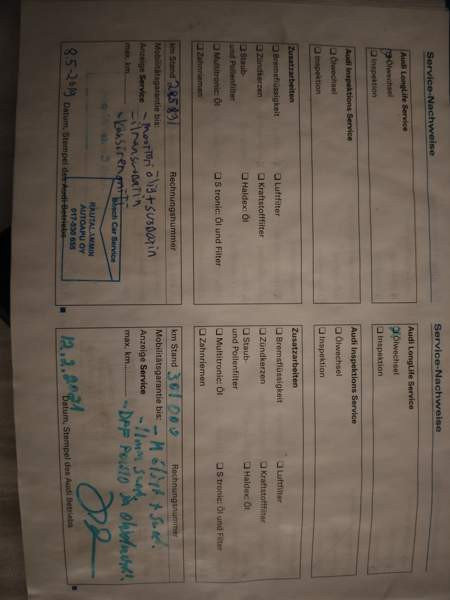 Service-Nachweise
Audi LongLife Service
Ölwechsel
Inspektion
Audi Inspektions Service
Ölwechsel
Inspektion
Zusatzarbeiten
Bremsflüssigkeit
Luftfilter
Zündkerzen
Kraftstofffilter
Staub- und Pollenfilter
Haldex: Öl
Multitronic: Öl
S tronic: Öl und Filter
Zahnriemen
km Stand
Rechnungsnummer
Mobilitätsgarantie bis:
Anzeige Service
max. km
- moottoriöljyt + suodatin
- ilmansuodatin
Bosch Car Service
RAUTALAMMIN
AUTOAPU OY
Datum, Stempel des Audi Betriebs
Service-Nachweise
Audi LongLife Service
Ölwechsel
Inspektion
Audi Inspektions Service
Ölwechsel
Inspektion
Zusatzarbeiten
Bremsflüssigkeit
Luftfilter
Zündkerzen
Kraftstofffilter
Staub- und Pollenfilter
Haldex: Öl
Multitronic: Öl
S tronic: Öl und Filter
Zahnriemen
km Stand 301 000
Rechnungsnummer
Mobilitätsgarantie bis:
Anzeige Service
max. km
12.2.2021
Datum, Stempel des Audi Betriebs